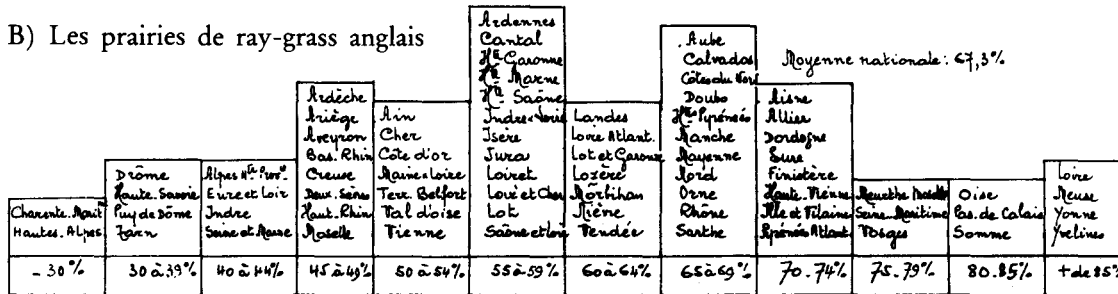 B) Les prairies de ray-grass anglais
Moyenne nationale: 67,3%
Charente-Marit
Hautes-Alpes
- 30%
Drôme
Haute-Savoie
Puy de Dôme
Tarn
30 à 39%
Alpes Hte Prov.
Eure et Loir
Indre
Seine et Marne
40 à 44%
Ardèche
Ariège
Aveyron
Bas. Rhin
Creuse
Deux. Sèvres
Haut. Rhin
Moselle
45 à 49%
Ain
Cher
Côte d'or
Maine et Loire
Terr. Belfort
Val d'oise
Vienne
50 à 54%
Ardennes
Cantal
Hte Garonne
Hte Marne
Hte Saône
Indre et Loire
Isère
Jura
Loiret
Loir et Cher
Lot
Saône et Loire
55 à 59%
Landes
Loire Atlant.
Lot et Garonne
Lozère
Morbihan
Nièvre
Vendée
60 à 64%
Aube
Calvados
Côtes du Nord
Doubs
Htes Pyrénées
Manche
Mayenne
Nord
Orne
Rhône
Sarthe
65 à 69%
Aisne
Allier
Dordogne
Eure
Finistère
Haute. Vienne
Ille et Vilaine
Pyrénées Atlant.
70.74%
Meurthe Moselle
Seine. Maritime
Vosges
75-79%
Oise
Pas. de Calais
Somme
80.85%
Loire
Meuse
Yonne
Yvelines
+ de 85%